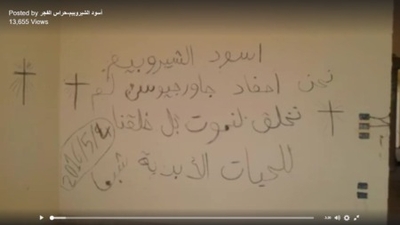 Posted by أسود الشيروبيم-حراس الفجر
13,655 Views
اسود الشيروبيم
نحن احفاد جاورجيوس لم
نخلق لنموت بل خلقنا
للحيات الأبدية